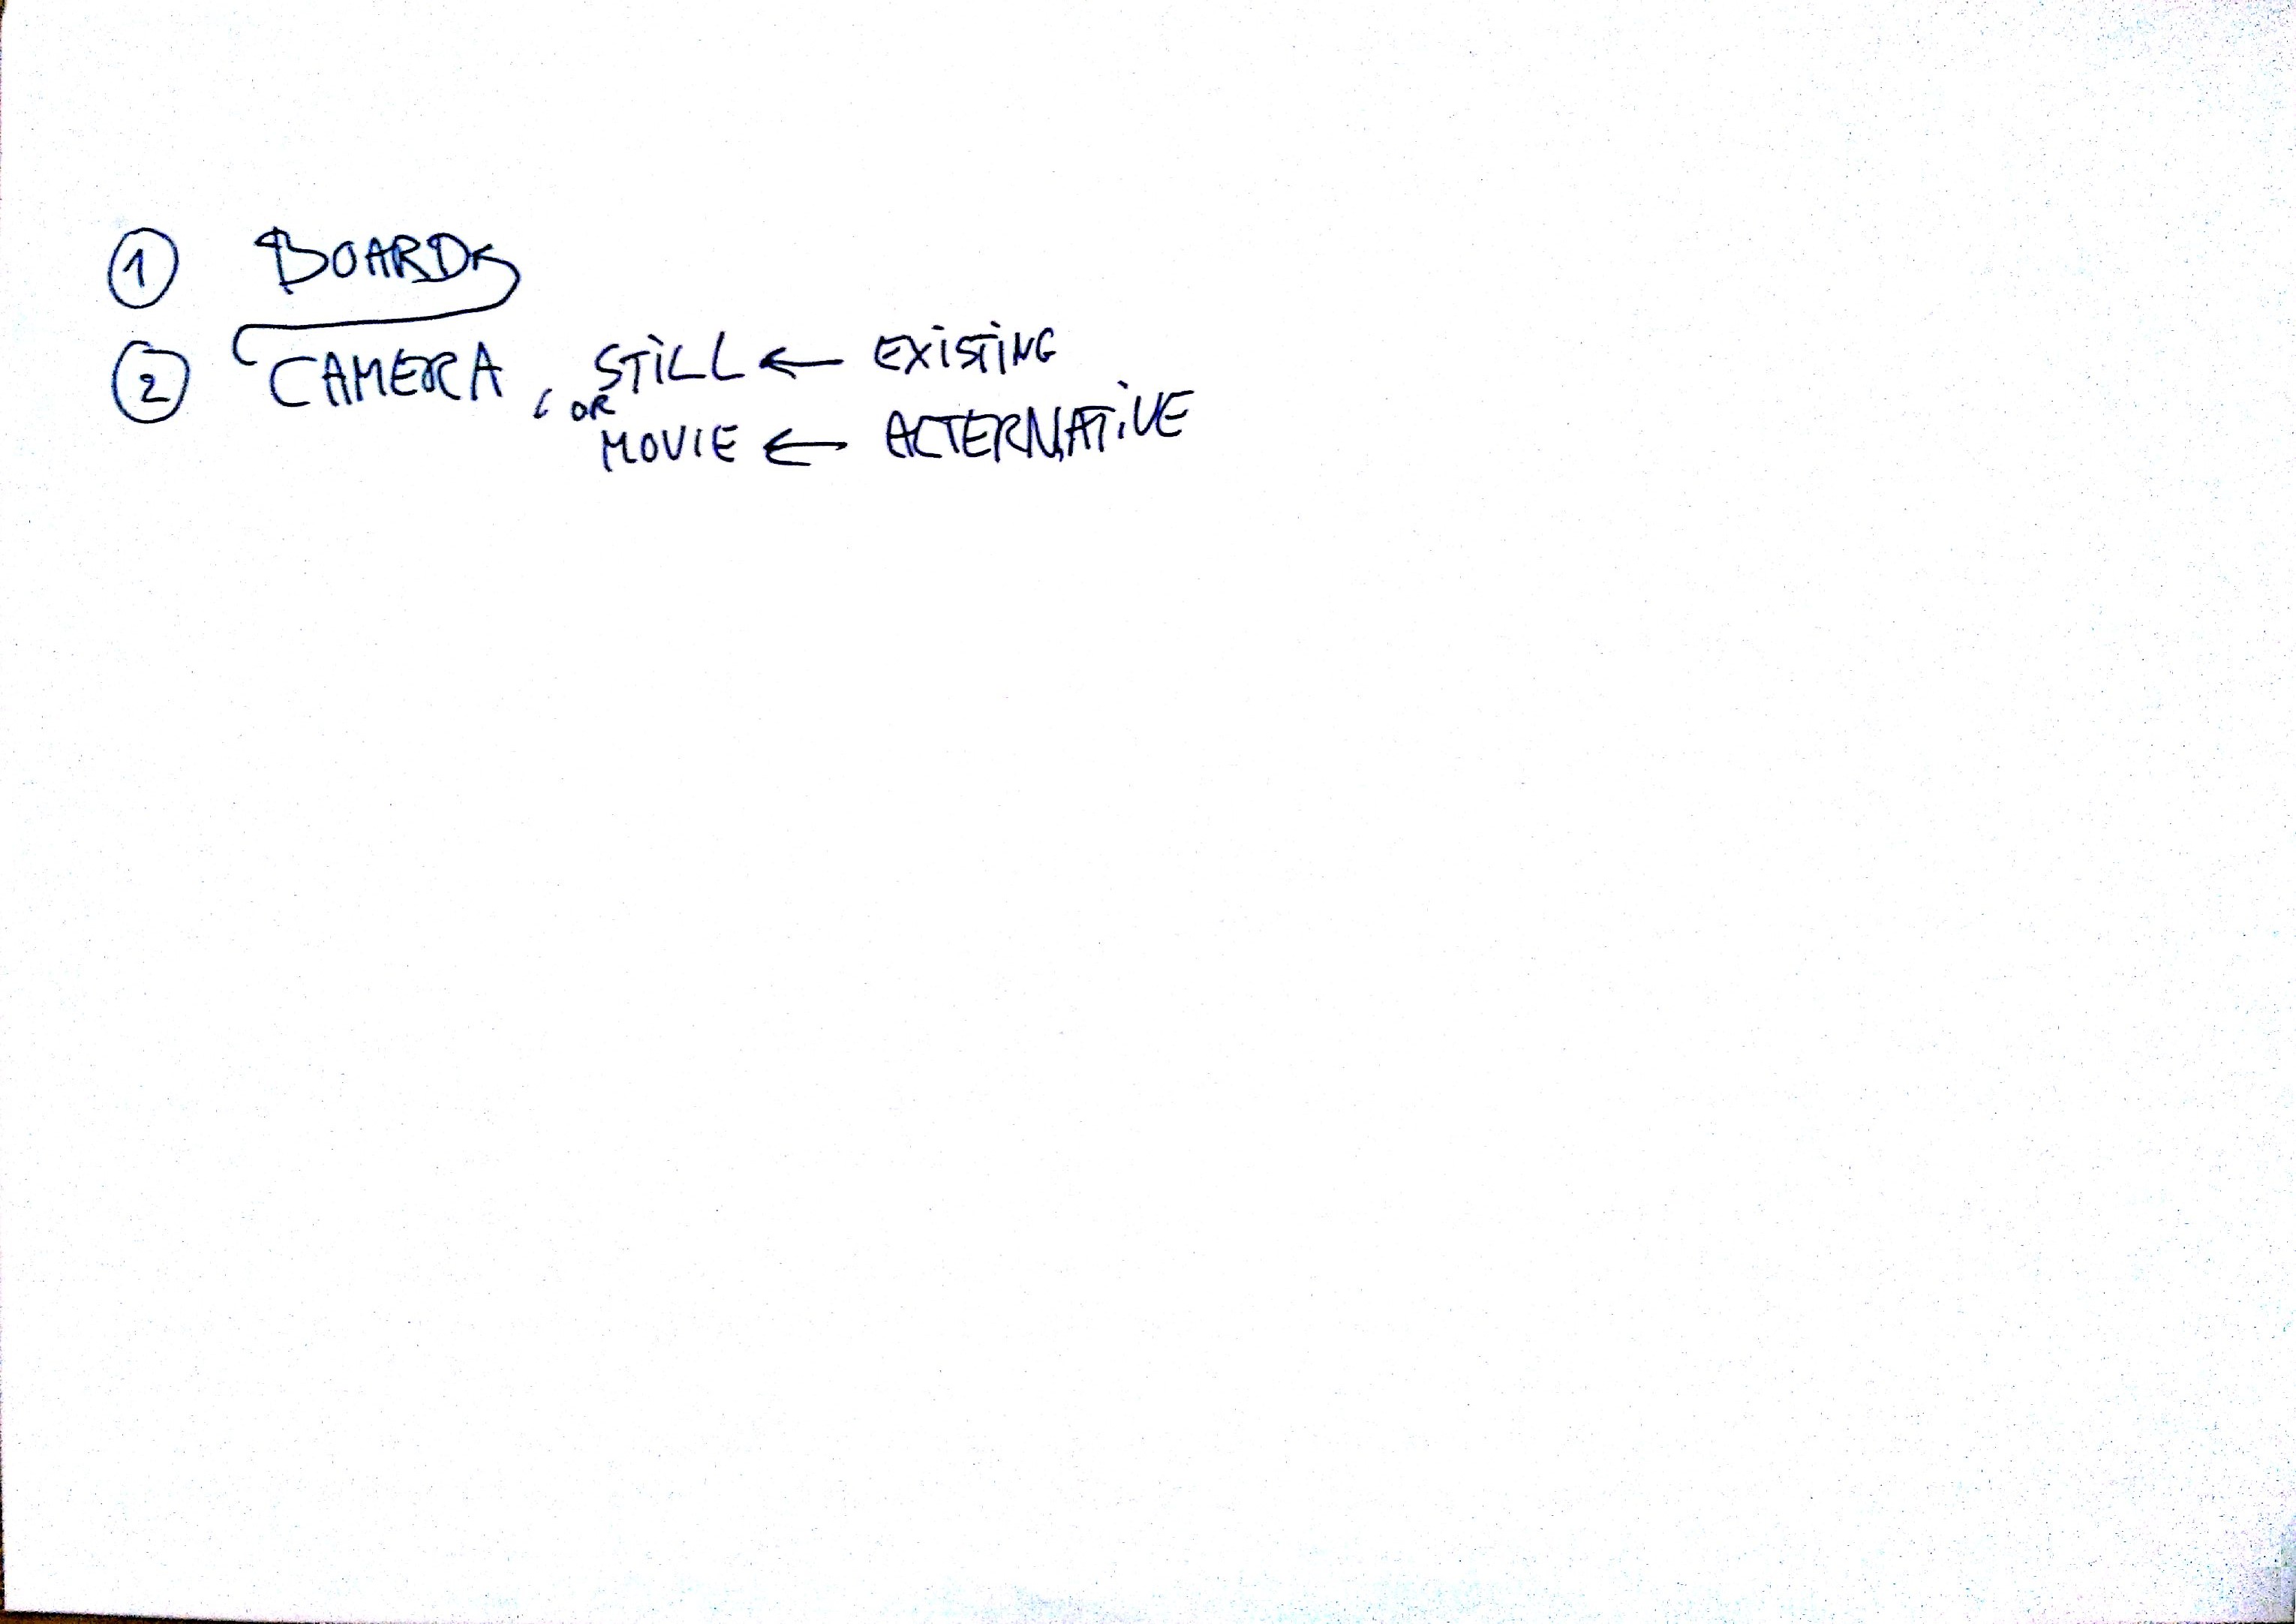 ① BOARDS
② CAMERA, STILL ← EXISTING
OR
MOVIE ← ALTERNATIVE